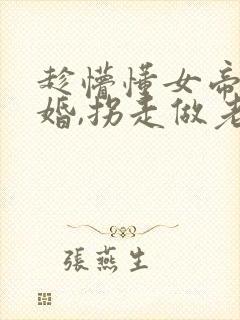 趁懵懂女帝
婚,拐走做老
張燕生